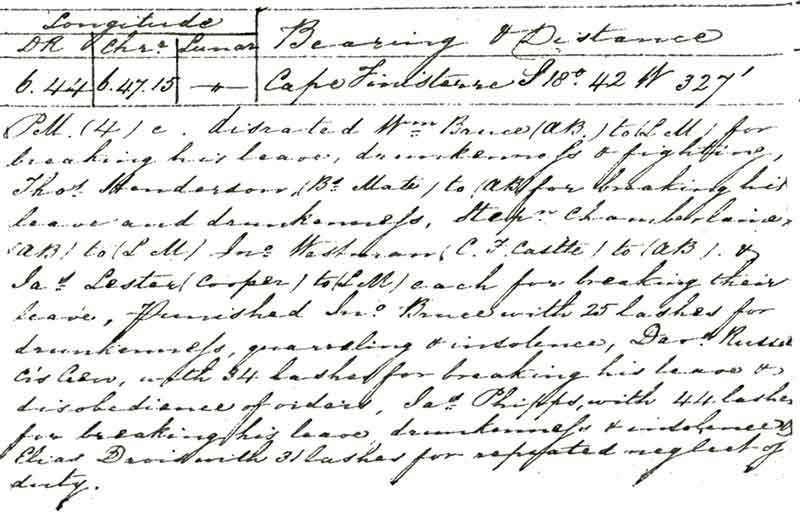 Longitude
DR Chrr Lunar Bearing & Distance
6.44 6.47.15 Cape Finisterre S 18° 42 W 327'
P.M. (4) c. disrated Wm Bruce (AB.) to (LM) for
breaking his leave, drunkenness & fighting,
Thos Henderson, (Bs Mate) to (AB) for breaking his
leave and drunkenness, Stepn Chamberlaine,
(AB) to (LM) Jno Westman (C. F. Castle) to (AB). &
Jas Lester (Cooper) to (LM) each for breaking their
leave, Punished Jno Bruce with 25 lashes for
drunkenness, quarreling & insolence, Davd Russel
with 34 lashes for breaking his leave &
disobedience of orders, Jas Phipps, with 44 lashes
for breaking his leave, drunkenness & insolence &
Elias Davis with 31 lashes for repeated neglect of
duty.